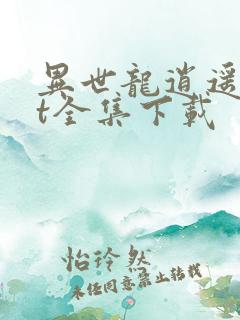 異世龍逍遥
t全集下載
怡玲然
未任同意禁止转载